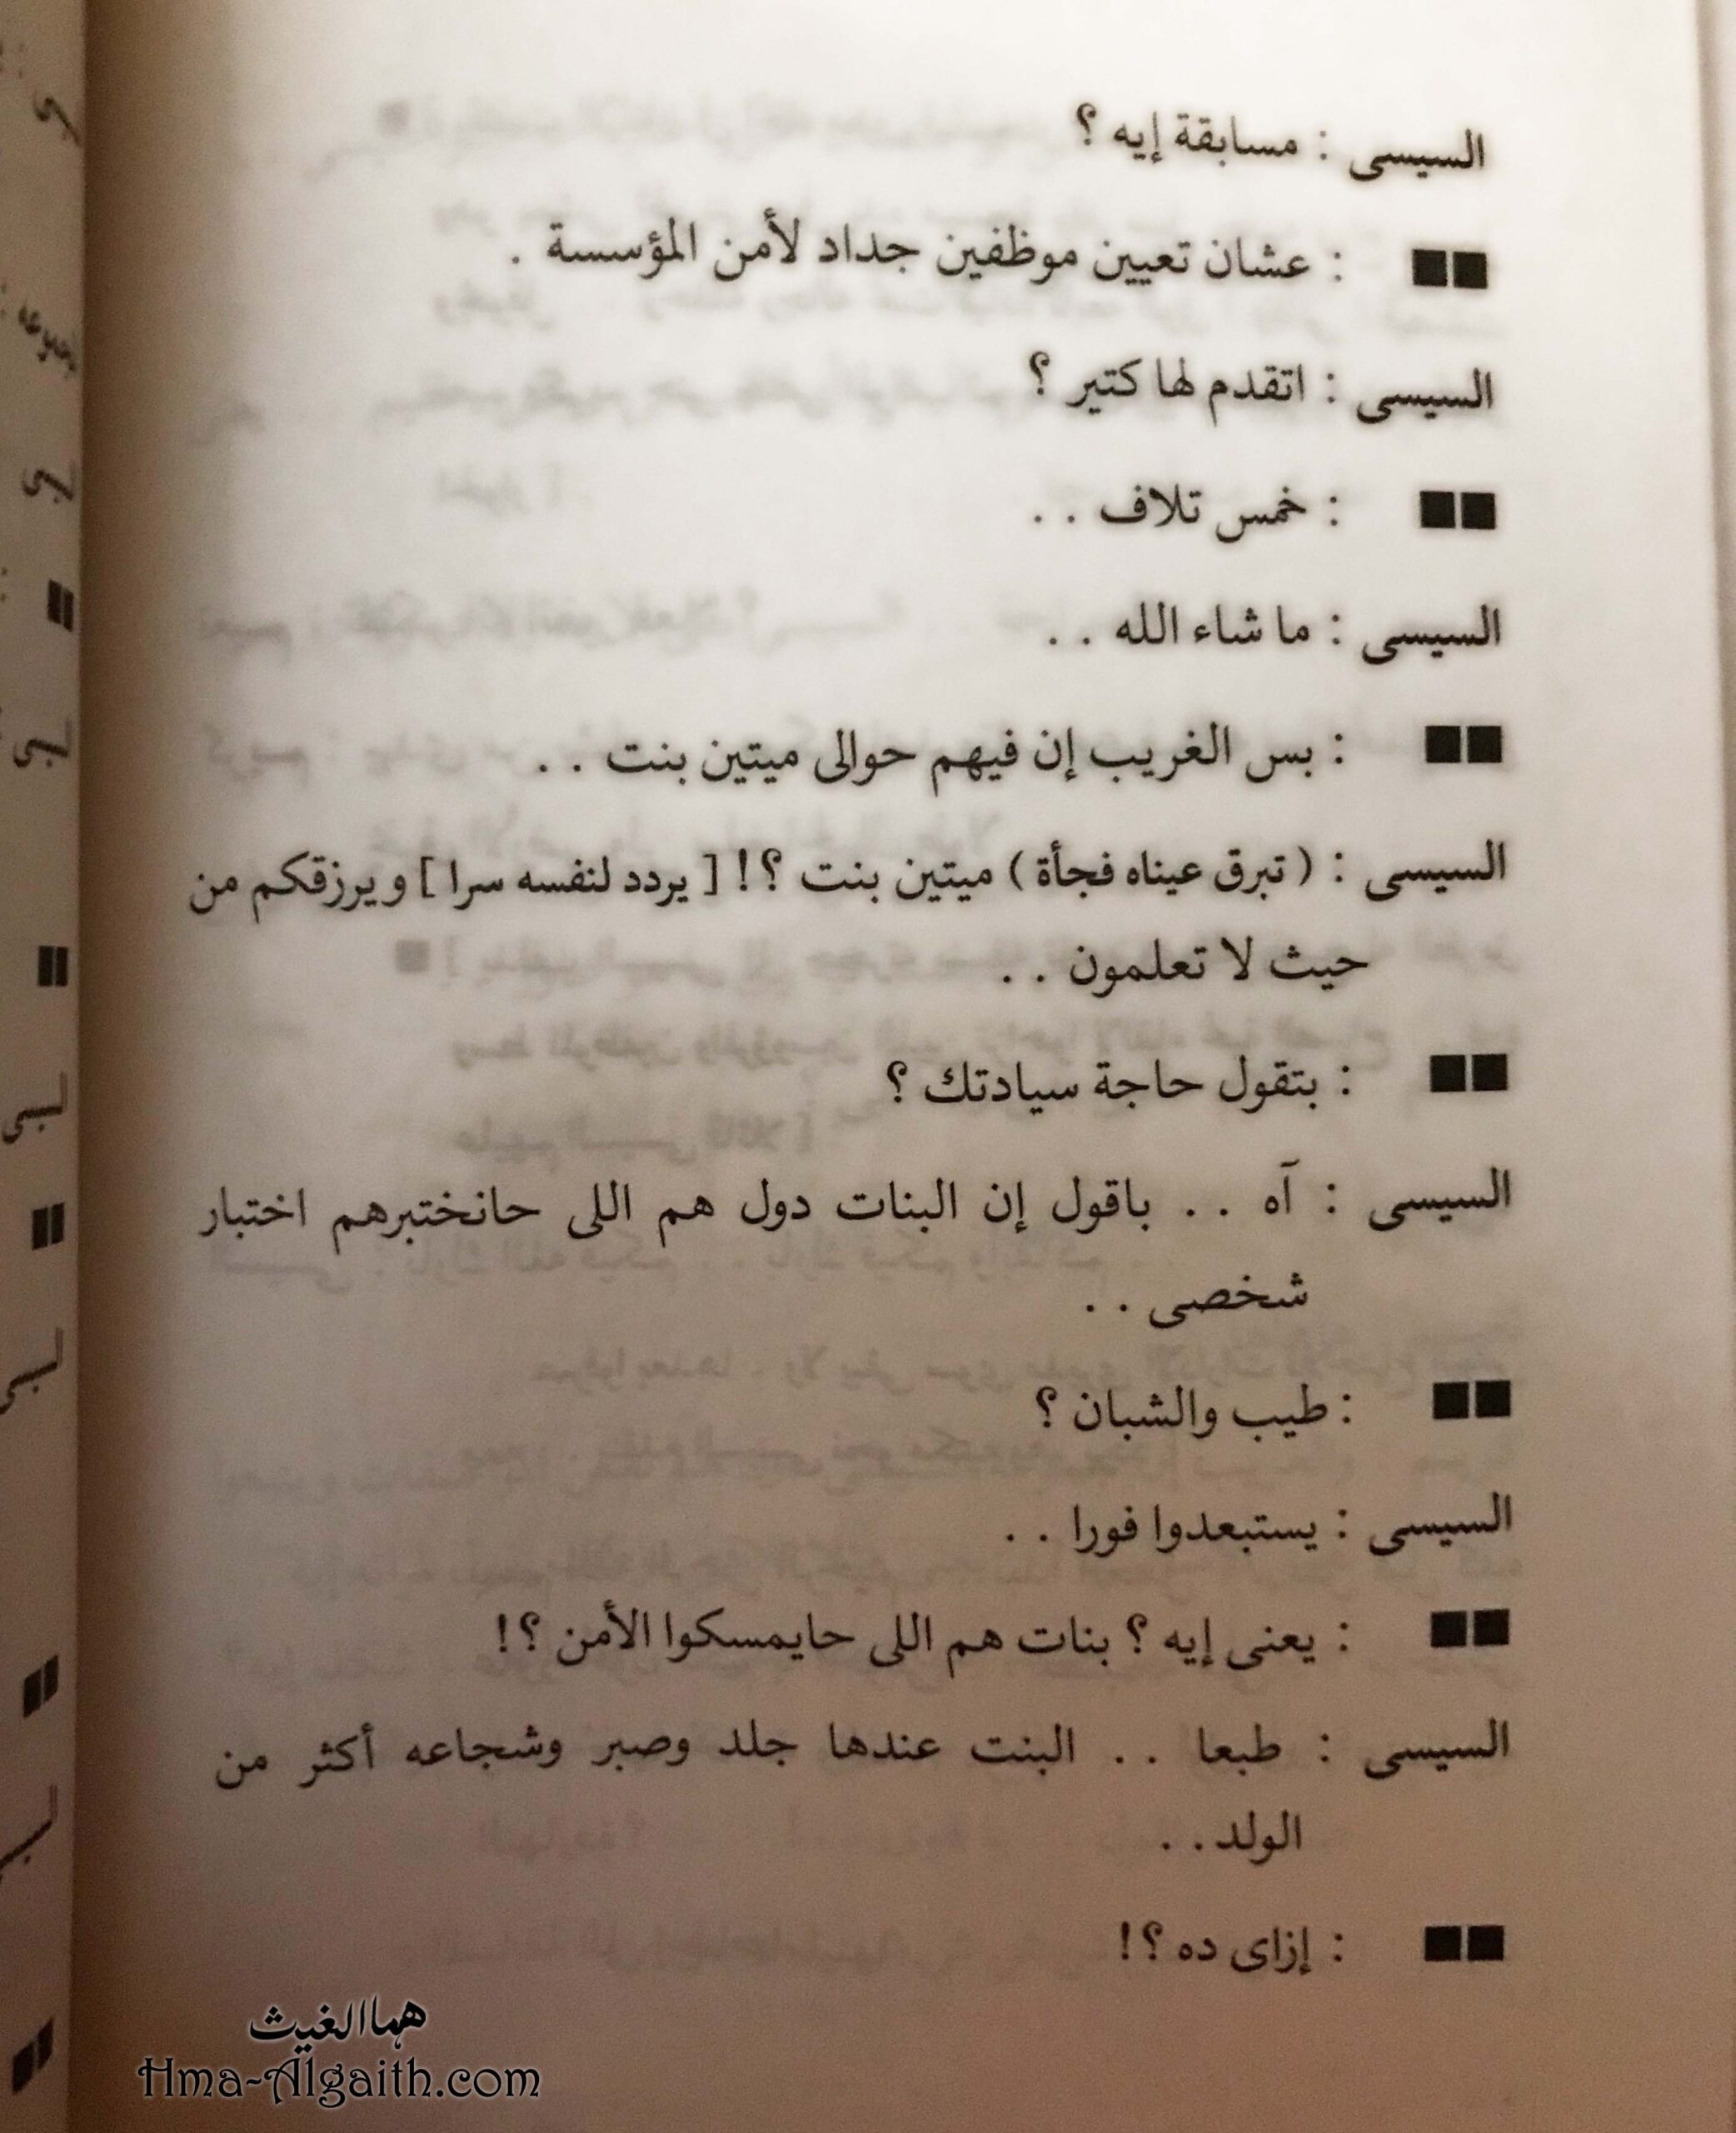 السيسى : مسابقة إيه ؟
■■ : عشان تعيين موظفين جداد لأمن المؤسسة .
السيسى : اتقدم لها كتير ؟
■■ : خمس تلاف . .
السيسى : ما شاء الله . .
■■ : بس الغريب إن فيهم حوالى ميتين بنت . .
السيسى : ( تبرق عيناه فجأة ) ميتين بنت ؟! [ يردد لنفسه سرا ] ويرزقكم من
حيث لا تعلمون . .
■■ : بتقول حاجة سيادتك ؟
السيسى : آه . . باقول إن البنات دول هم اللى حانختبرهم اختبار
شخصى . .
■■ : طيب والشبان ؟
السيسى : يستبعدوا فورا . .
■■ : يعنى إيه ؟ بنات هم اللى حايمسكوا الأمن ؟!
السيسى : طبعا . . البنت عندها جلد وصبر وشجاعه أكثر من
الولد . .
■■ : إزاى ده ؟!
هما الغيث
Hma-Algaith.com